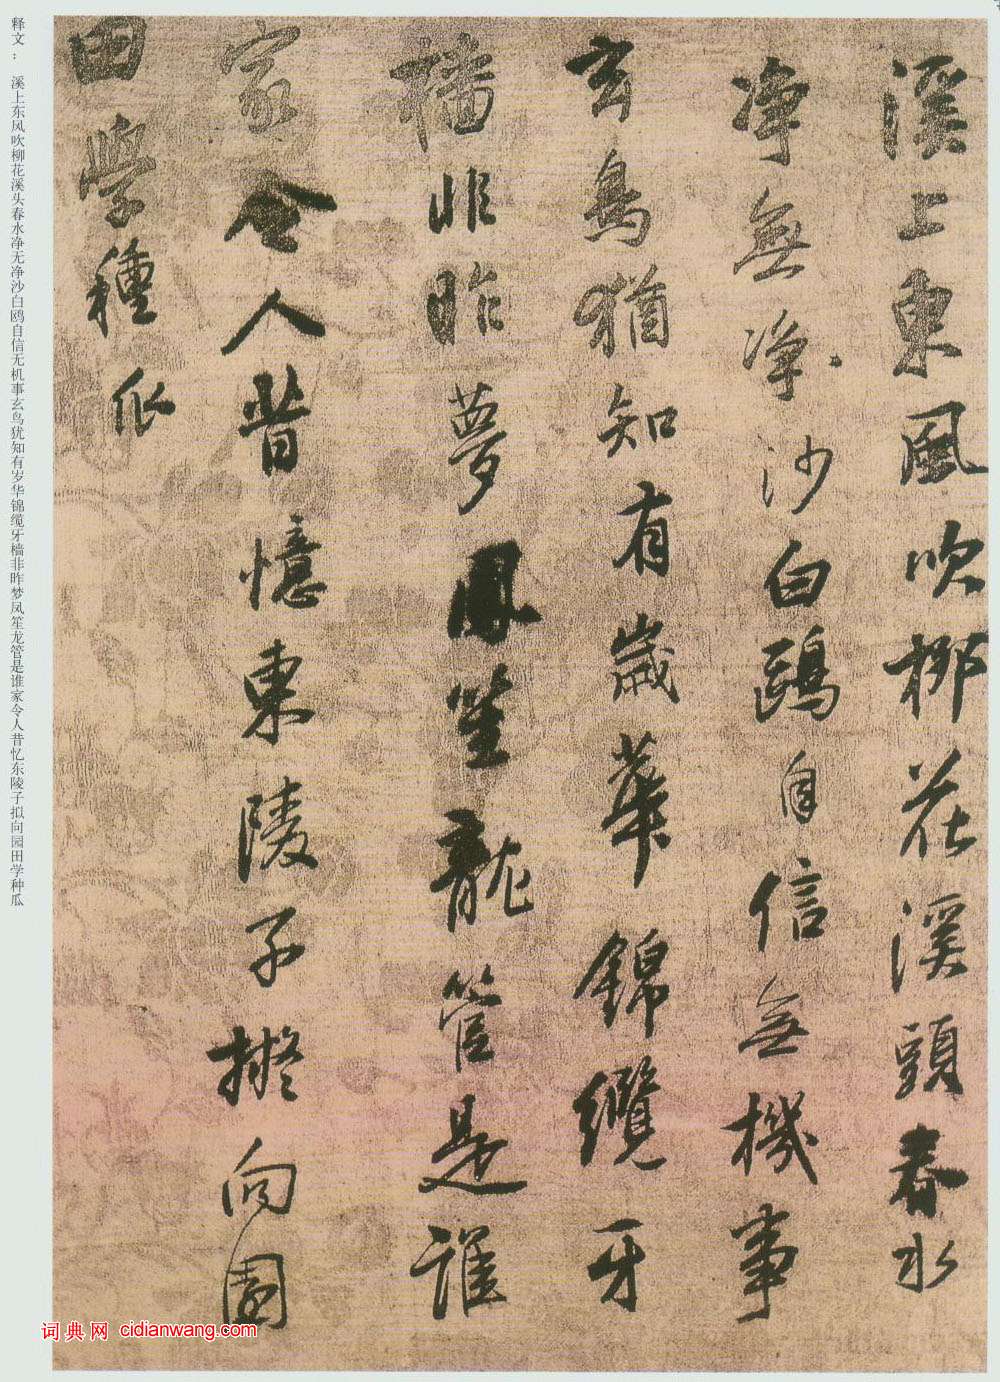 溪上東風吹柳花溪頭春水
净無净沙白鷗自信無機事
玄鳥猶知有歲華錦纜牙
檣非昨夢鳳笙龍管是誰
家令人昔憶東陵子擬向園
田學種瓜
释文： 溪上东风吹柳花溪头春水净无净沙白鸥自信无机事玄鸟犹知有岁华锦缆牙樯非昨梦凤笙龙管是谁家令人昔忆东陵子拟向园田学种瓜
词典网 cidianwang.com